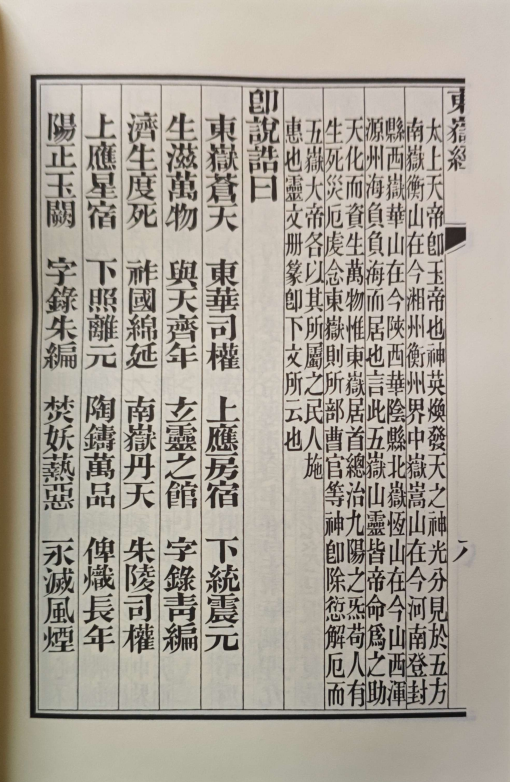 東嶽經
太上天帝卽玉帝也神英煥發天之神光分見於五方
南嶽衡山在今湘州衡州界中嶽嵩山在今河南登封
縣西嶽華山在今陜西華陰縣北嶽恆山在今山西渾
源州海負負海而居也言此五嶽山靈皆帝命爲之助
天化而資生萬物惟東嶽居首總治九陽之炁苟人有
生死災厄虔念東嶽則所部曹官等神卽除愆解厄而
五嶽大帝各以其所屬之民人施
惠也靈文册篆卽下文所云也
卽說誥曰
東嶽蒼天 東華司權 上應房宿 下統震元
生滋萬物 與天齊年 玄靈之館 字錄靑編
濟生度死 祚國綿延 南嶽丹天 朱陵司權
上應星宿 下照離元 陶鑄萬品 俾熾長年
陽正玉闕 字錄朱編 焚妖爇惡 永滅風煙